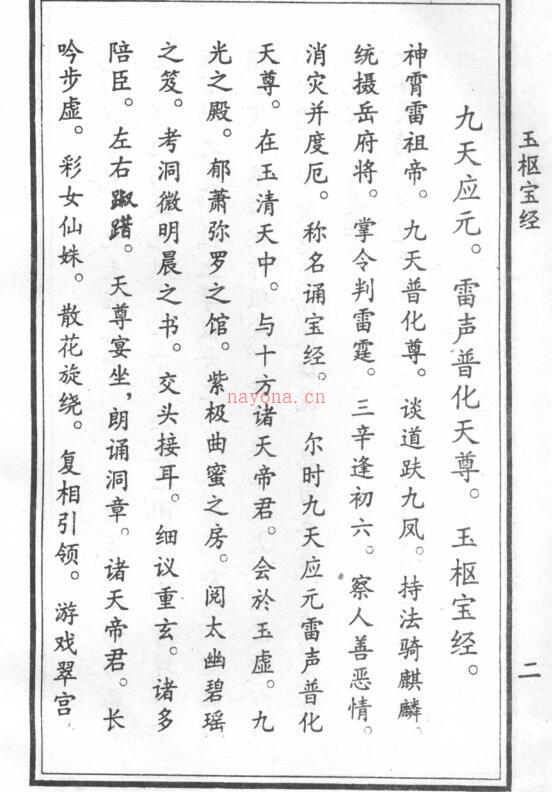 玉枢宝经
二
九天应元。雷声普化天尊。玉枢宝经。
神霄雷祖帝。九天普化尊。谈道趺九凤。持法骑麒麟。
统摄岳府将。掌令判雷霆。三辛逢初六。察人善恶情。
消灾并度厄。称名诵宝经。　尔时九天应元雷声普化
天尊。在玉清天中。与十方诸天帝君。会於玉虚。九
光之殿。郁萧弥罗之馆。紫极曲蜜之房。阅太幽碧瑶
之笈。考洞微明晨之书。交头接耳。细议重玄。诸多
陪臣。左右踧踖。天尊宴坐，朗诵洞章。诸天帝君。长
吟步虚。彩女仙姝。散花旋绕。复相引领。游戏翠宫
nayona.cn